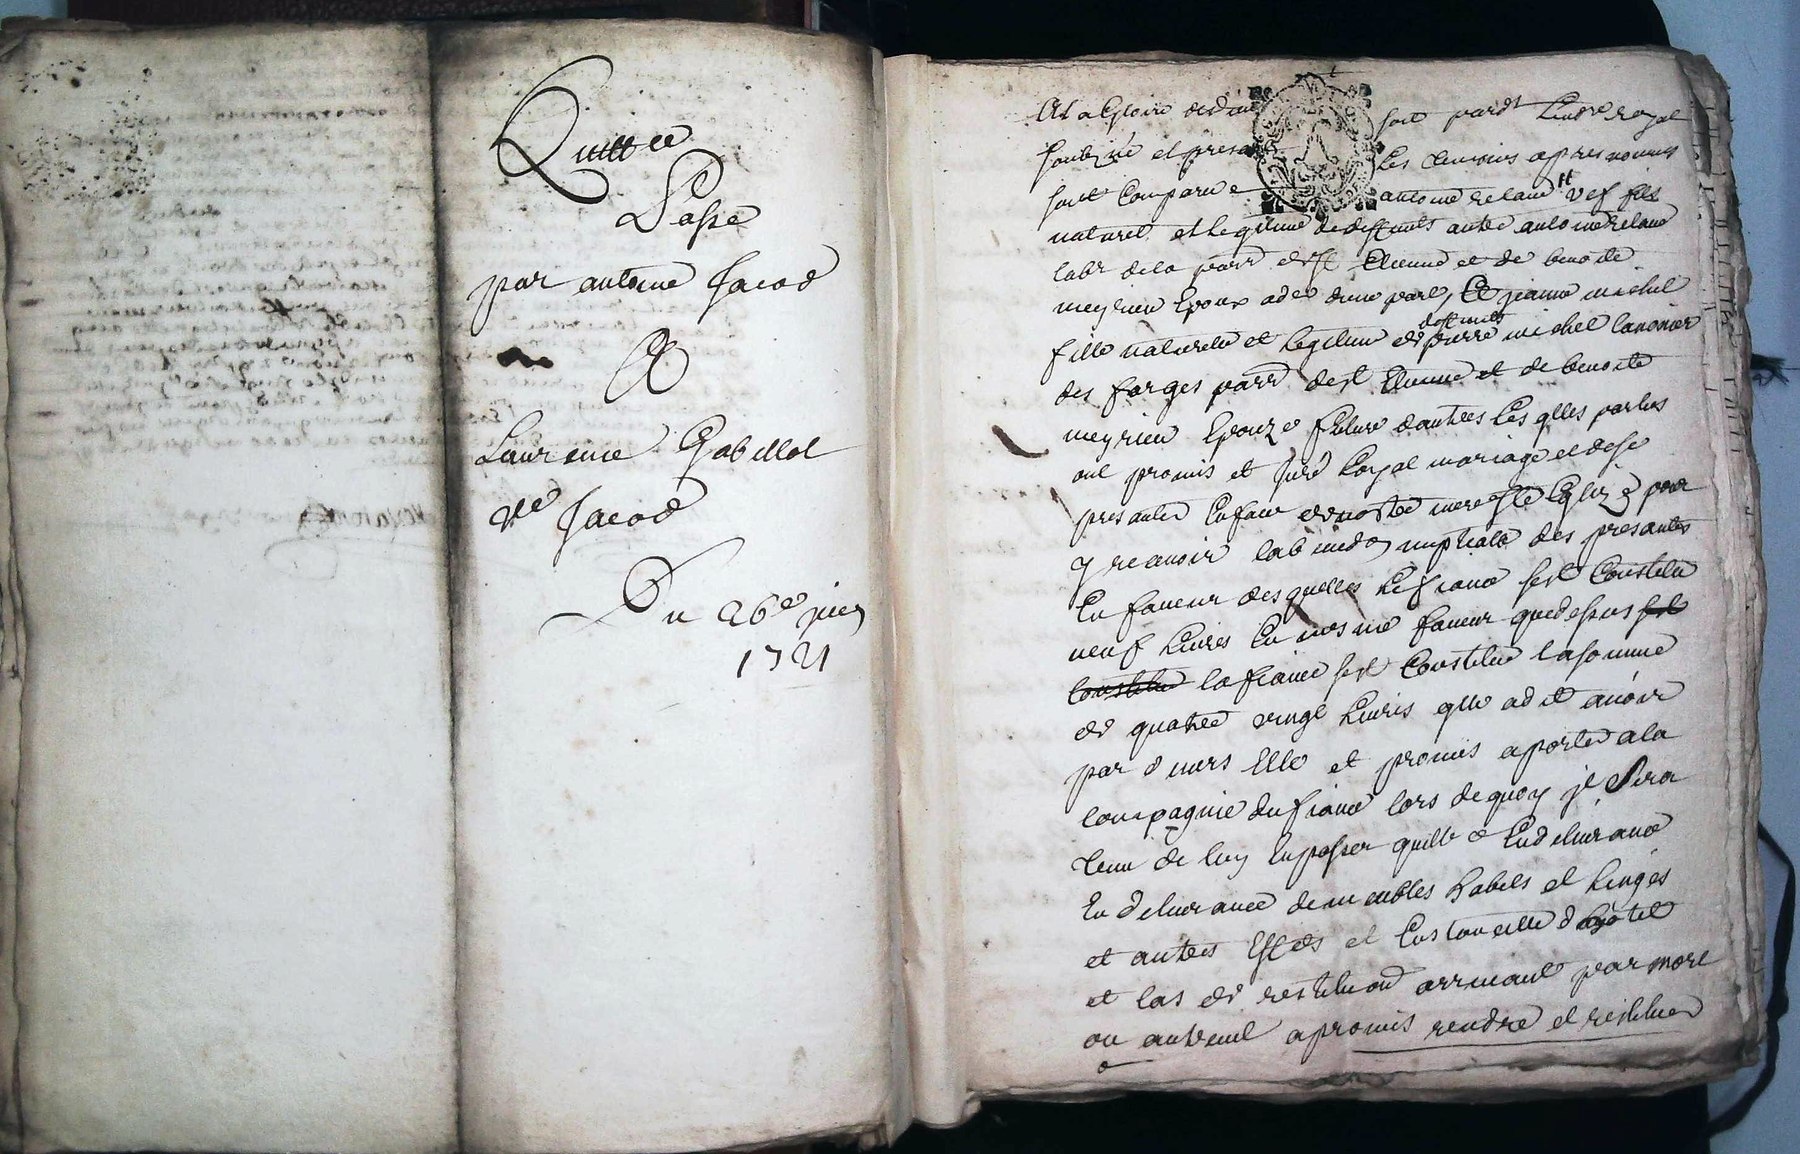 Quittce
Passe
par antoine Jacod
A
Laurence Gabillot
ve Jacod
Du 26e juin
1721
Al a Gloire de dieu soit pardt Lendre royal
soubzne et presa les temoins apres nommes
sont comparu antoine relave vef fils
naturel et legitime de deffunts autre antoine relave
labr de la parr de st Etienne et de benoite
meyrieu Epoux ade dune part, Et jeanne michel
fille naturelle et legitime de deffunts pierre michel canonier
des forges parr de st Etienne et de benoite
meyrieu Epouze future dautres Les qlles parties
ont promis et juré Loyal mariage et de se
presanter En face de nostre mere Ste Eglize pour
y recevoir la bened on nuptiale des presantes
En faveur desquelles Le fiance sest Constitue
neuf Livres En mesme faveur que dessus sest
Constitue la fiancee sest Constitue la somme
de quatre vingt Livres qlle a dit avoir
par d evers Elle et promis aporter a la
Compagnie du fiance lors de quoy il sera
tenu de luy En passer quittce En delivrance
En delivrance de meubles habits et Linges
et autres Effets et
et cas de restituon arrivant par mort
ou autremt a promis rendre et restituer